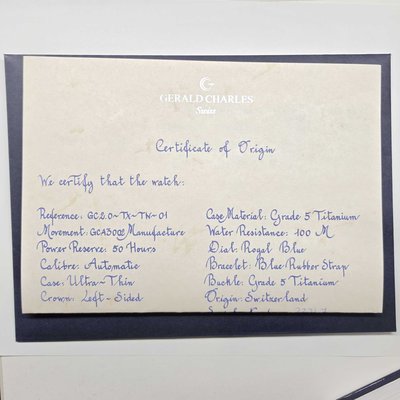 GERALD CHARLES
Swiss
Certificate of Origin
We certify that the watch:
Reference: GC2.0-TX-TN-01
Movement: GCA3002 Manufacture
Power Reserve: 50 Hours
Calibre: Automatic
Case: Ultra-Thin
Crown: Left-Sided
Case Material: Grade 5 Titanium
Water Resistance: 100 M
Dial: Royal Blue
Bracelet: Blue Rubber Strap
Buckle: Grade 5 Titanium
Origin: Switzerland